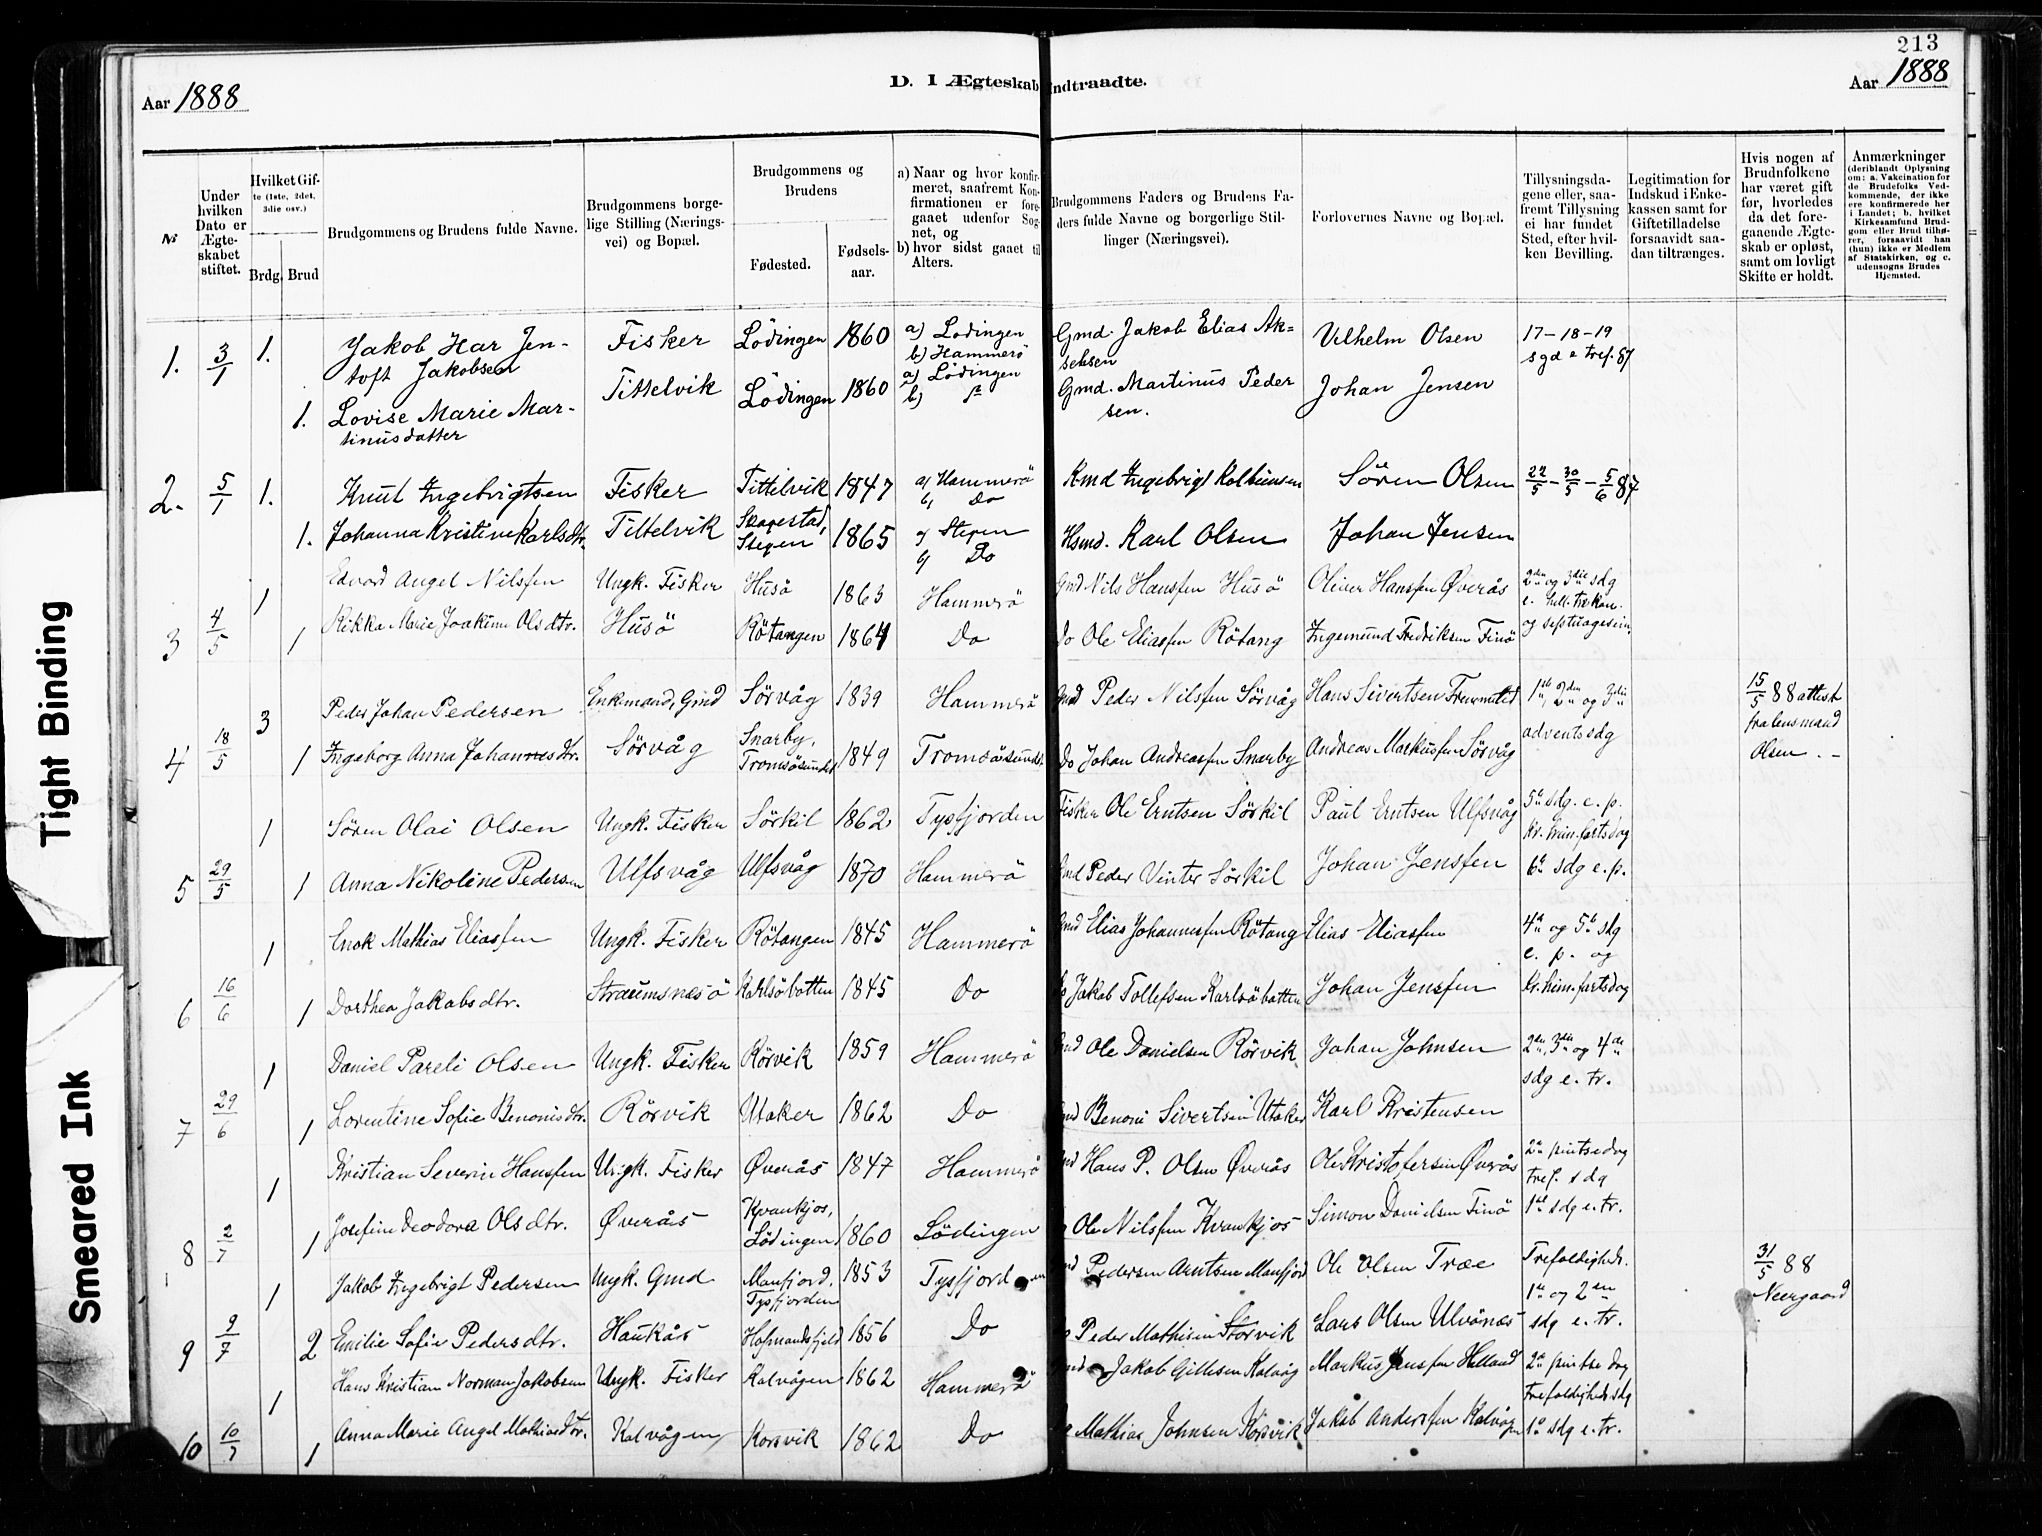 213
D. I Ægteskab Indtraadte.
Aar 1888
Aar 1888
No
Under hvilken Dato er Ægteskabet stiftet.
Hvilket Gifte (1ste, 2det, 3die osv.)
Brdg. Brud
Brudgommens og Brudens fulde Navne.
Brudgommens borgelige Stilling (Næringsvei) og Bopæl.
Brudgommens og Brudens
Fødested.
Fødselsaar.
a) Naar og hvor konfirmeret, saafremt Konfirmationen er foregaaet udenfor Sognet, og
b) hvor sidst gaaet til Alters.
Brudgommens Faders og Brudens Faders fulde Navne og borgerlige Stillinger (Næringsvei).
Forlovernes Navne og Bopæl.
Tillysningsdagene eller, saafremt Tillysning ei har fundet Sted, efter hvilken Bevilling.
Legitimation for Indskud i Enkekassen samt for Giftetilladelse forsaavidt saadan tiltrænges.
Hvis nogen af Brudnfolkene har været gift før, hvorledes da det foregaaende Ægteskab er opløst, samt om lovligt Skifte er holdt.
Anmærkninger (deriblandt Oplysning om: a. Vakcination for de Brudefolks Vedkommende, der ikke ere konfirmerede her i Landet; b. hvilket Kirkesamfund Brudgom eller Brud tilhører, forsaavidt han (hun) ikke er Medlem af Statskirken, og c. udensogns Brudes Hjemsted.
1. 3/1 1. Jakob Har Jentoft Jakobsen Fisker Lödingen 1860 a) Lodingen b) Hammerö Gmd. Jakob Elias Akselsen Vilhelm Olsen 17-18-19 sgd e tref. 87
1. Lovise Marie Martinusdatter Tittelvik Lödingen 1860 a) Lödingen b) Gmd. Martinus Pedersen. Johan Jensen
2. 5/1 1. Knut Ingebrigtsen Fisker Tittelvik 1847 a) Hammerö b) Do Kmd Ingebrigt Kolbiensen Sören Olsen 22/5-30/5-5/6 87
1. Johanna Kristine Karlsdtr. Tittelvik Skogestad, Stegen 1865 a) Stegen b) Do Hsmd. Karl Olsen Johan Jensen
1 Edvard Angel Nilssen Ungk. Fisker Husö 1863 Hammerö Gmd Nils Hanssen Husö Oliver Hanssen Øverås 2den og 3die sdg
e. hell. tre kon.
3 4/5 1 Rikka Marie Joakime Olsdtr. Husö Rötangen 1864 Do Do Ole Eliassen Rötang Ingemund Fredriksen Finö og septuagesim.
3 Peder Johan Pedersen Enkemand, Gmd Sörvåg 1839 Hammerö Gmd Peder Nilssen Sörvåg Hans Sivertsen 1ste, 2den og 3die 15/5 88 attest fra lensmand
4 18/5 1 Ingeborg Anna Johannesdtr. Sörvåg Snarby, Tromsösundet 1849 Tromsösundet Do Johan Andreassen Snarby Andreas Markussen Sörvåg adventssdg Olsen.-
1 Sören Olai Olsen Ungk. Fisker Sörkil 1862 Tysfjorden Fisker Ole Erntsen Sörkil Paul Erntsen Ulfsvåg 5te sdg. e. p.
kr. him.fartsdag
5 29/5 1 Anna Nikoline Pedersen Ulfsvåg Ulfsvåg 1870 Hammerö Gmd Peder Vinter Sörkil Johan Jenssen 6te sdg e. p.
1 Enok Mathias Eliassen Ungk. Fisker Rötangen 1845 Hammerö Gmd Elias Johannessen Rötang Elias Eliassen 4de og 5te sdg
e. p. og
6 16/6 1 Dorthea Jakobsdtr. Straumsnesö Karlsöbotten 1845 Do Do Jakob Tollefsen Karlsöbotten Johan Jenssen kr. him.fartsdag
1 Daniel Pareli Olsen Ungk. Fisker Rörvik 1859 Hammerö Gmd Ole Danielsen Rörvik Johan Johnsen 2den, 3die og 4de
sdg e. tr.
7 29/6 1 Lorentine Sofie Benonisdtr. Rörvik Utaker 1862 Do Gmd Benoni Sivertsen Utaker Karl Kristensen
1 Kristian Severin Hanssen Ungk. Fisker Øverås 1847 Hammerö Gmd Hans P. Olsen Øverås Ole Kristofersen Øverås 2den pintsedag
tref. sdg
8 2/7 1 Josefine Deodora Olsdtr. Øverås Kvankjos, Lödingen 1860 Lödingen Ole Nilssen Kvankjos Simon Danielsen Finö 1ste sdg e. tr.
1 Jakob Ingebrigt Pedersen Ungk. Gmd Manfjord, Tysfjorden 1853 Tysfjorden Gmd Pedersen Arntsen Manfjord Ole Olsen Træe Trefoldigheds. 31/5 88
1ste og 2den Neergaard
9 9/7 2 Emilie Sofie Pedersdtr. Haukås 1856 Do Peder Mathisen Storvik Lars Olsen Ulvönæs sdg e. tr.
1 Hans Kristian Norman Jakobsen Ungk. Fisker Kalvågen 1862 Hammerö Gmd Jakob Gillesen Kalvåg Markus Jenssen Helland 2den pintsedag
trefoldighedssdg
10 10/7 1 Anna Marie Angel Mathiasdtr. Kalvågen Korsvik 1862 Do Mathias Johnsen Korsvik Jakob Anderssen Kalvågen 1ste sdg e. tr.
Tight Binding
Smeared Ink